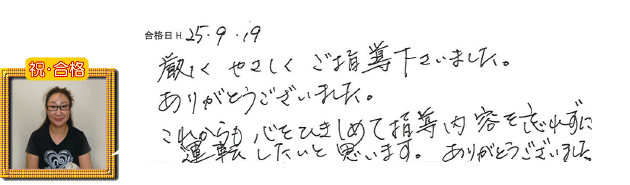 合格日 H 25・9・19
祝・合格
厳しく やさしく ご指導下さいました。
ありがとうございました。
これからも 心をひきしめて指導内容を忘れずに
運転したいと思います。 ありがとうございました